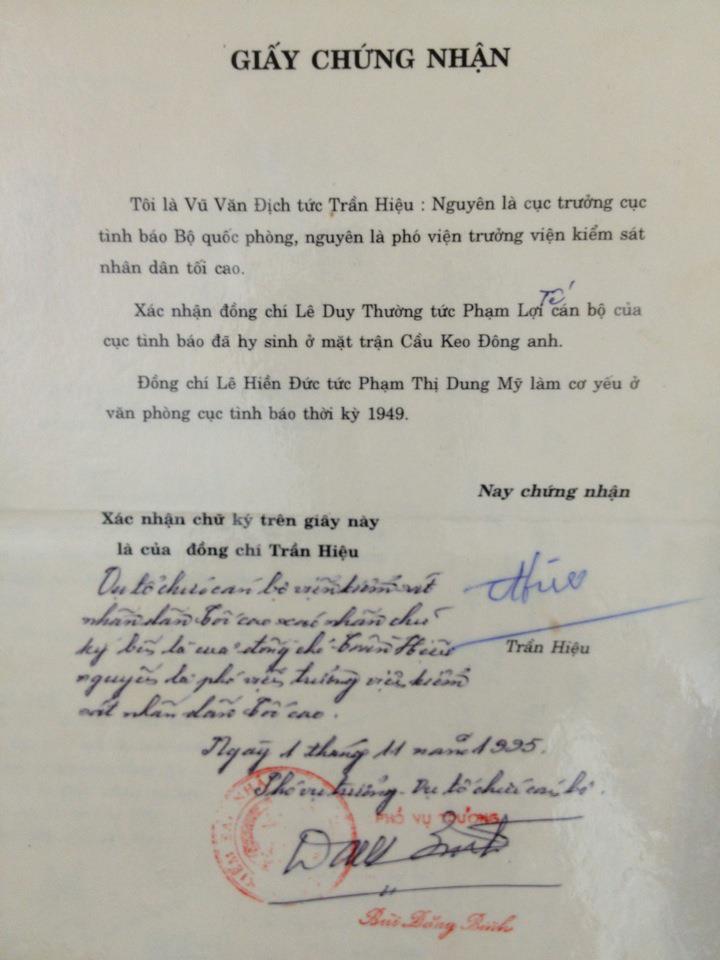 GIẤY CHỨNG NHẬN
Tôi là Vũ Văn Địch tức Trần Hiệu : Nguyên là cục trưởng cục
tình báo Bộ quốc phòng, nguyên là phó viện trưởng viện kiểm sát
nhân dân tối cao.
Tế
Xác nhận đồng chí Lê Duy Thường tức Phạm Lợi cán bộ của
cục tình báo đã hy sinh ở mặt trận Cầu Keo Đông anh.
Đồng chí Lê Hiền Đức tức Phạm Thị Dung Mỹ làm cơ yếu ở
văn phòng cục tình báo thời kỳ 1949.
Nay chứng nhận
Xác nhận chữ ký trên giấy này
là của đồng chí Trần Hiệu
Vụ tổ chức cán bộ viện kiểm sát
nhân dân tối cao xác nhận chữ
ký bên là của đồng chí Trần Hiệu
nguyên là phó viện trưởng viện kiểm
sát nhân dân tối cao.
Hiệu
Trần Hiệu
Ngày 1 tháng 11 năm 1995.
Phó vụ trưởng Vụ tổ chức cán bộ.
PHÓ VỤ TRƯỞNG
Bùi Đăng Bình